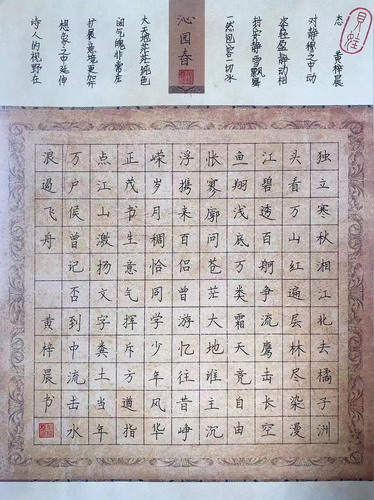 诗人的视野在
想象之中延伸
扩展意境更加开
阔气魄非常庄
大天地茫茫纯色
沁园春
一然包容一切冰
封宁静雪飘舞
姿轻盈静动相
对静穆之中动
态 黄梓晨
独立寒秋湘江北去橘子洲
头看万山红遍层林尽染漫
江碧透百舸争流鹰击长空
鱼翔浅底万类霜天竞自由
怅寥廓问苍茫大地谁主沉
浮携来百侣曾游忆往昔峥
嵘岁月稠恰同学少年风华
正茂书生意气挥斥方遒指
点江山激扬文字粪土当年
万户侯曾记否到中流击水
浪遏飞舟 黄梓晨书